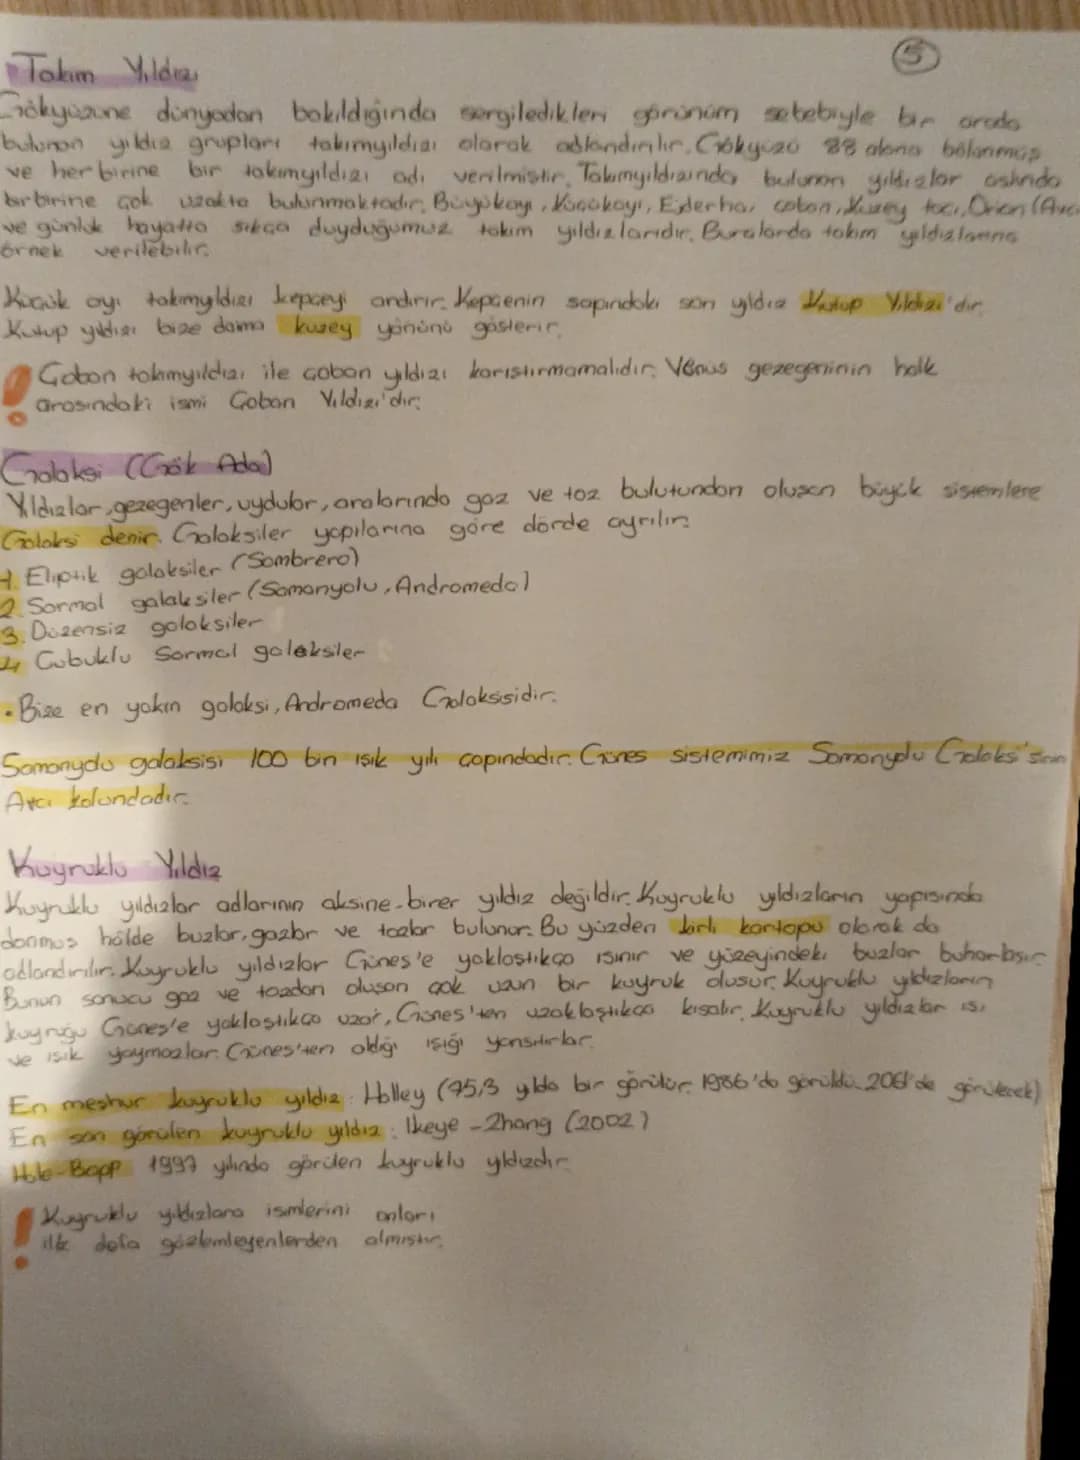 5
Takım Yıldızı
Gökyüzüne dünyadan bakıldığında sergiledikleri görünüm sebebiyle bir arada
bulunan yıldız grupları takımyıldızı olarak adlandırılır. Gökyüzü 88 alana bölünmüş
ve her birine bir takımyıldızı adı verilmiştir. Takımyıldızında bulunan yıldızlar aslında
birbirine çok uzakta bulunmaktadır. Büyükayı, Küçükayı, Ejderha, çoban, Kuzey tacı, Orion (Avcı
ve günlük hayatta sıkça duyduğumuz takım yıldızlarıdır. Buralarda takım yıldızlarına
örnek verilebilir.
Küçük ayı takımyıldızı kepçeyi andırır. Kepçenin sapındaki son yıldız Kutup Yıldızı'dır.
Kutup yıldızı bize daima kuzey yönünü gösterir.
Çoban takımyıldızı ile çoban yıldızı karıştırmamalıdır. Venüs gezegeninin halk
arasındaki ismi Çoban Yıldızı'dır.
Galaksi (Gök Ada)
Yıldızlar, gezegenler, uydular, aralarında gaz ve toz bulutundan oluşan büyük sistemlere
Galaksi denir. Galaksiler yapılarına göre dörde ayrılır:
1. Eliptik galaksiler (Sombrero)
2. Sarmal galaksiler (Samanyolu, Andromeda)
3. Düzensiz galaksiler
4. Çubuklu Sarmal galaksiler
• Bize en yakın galaksi, Andromeda Galaksisidir.
Samanyolu galaksisi 100 bin ışık yılı çapındadır. Güneş sistemimiz Samanyolu Galaksi'sinin
Avcı kolundadır.
Kuyruklu Yıldız
Kuyruklu yıldızlar adlarının aksine birer yıldız değildir. Kuyruklu yıldızların yapısında
donmuş hâlde buzlar, gazlar ve tozlar bulunur. Bu yüzden kirli kartopu olarak da
adlandırılır. Kuyruklu yıldızlar Güneş'e yaklaştıkça ısınır ve yüzeyindeki buzlar buharlaşır.
Bunun sonucu gaz ve tozdan oluşan çok uzun bir kuyruk oluşur. Kuyruklu yıldızların
kuyruğu Güneş'e yaklaştıkça uzar, Güneş'ten uzaklaştıkça kısalır. Kuyruklu yıldızlar ısı
ve ışık yaymazlar. Güneş'ten aldığı ışığı yansıtırlar.
En meşhur kuyruklu yıldız: Halley (75,3 yılda bir görülür. 1986'da görüldü. 2061'de görülecek)
En son görülen kuyruklu yıldız: Ikeye - Zhang (2002)
Hale-Bopp 1997 yılında görülen kuyruklu yıldızdır.
Kuyruklu yıldızlara isimlerini onları
ilk defa gözlemleyenlerden almıştır.